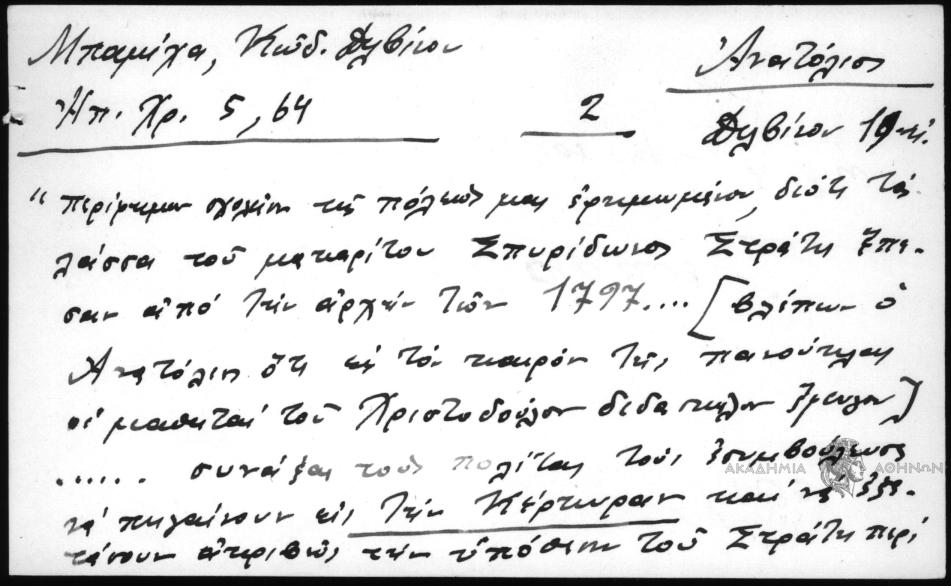 Μπαμίχα, Κώδ. Δελβίνου
Ἀνατόλιος
Ἠπ. Χρ. 5, 64
2
Δελβίνου 19
"περὶ τῶν σχολείων τῆς πόλεως μας ἐρημωμένου, διότι τὰ
λάσσα τοῦ μακαρίτου Σπυρίδωνος Στράτη ἔπε-
σαν ἀπό τὴν ἀρχὴν τῶν 1797.... [βλέπων ὁ
Ἀνατόλιος ὅτι εἰς τὸν καιρὸν τῆς πανούκλας
οἱ μαθηταί τοῦ Χριστοδούλου διδασκάλου ἔφευγον]
...... συνάξας τοὺς πολίτας τους ἐσυμβούλευσε
νά πηγαίνουν εἰς τὴν Κέρκυραν καί νά ἐξε-
τάσουν ἀκριβῶς τὴν ὑπόθεσιν τοῦ Στράτη περί
ΑΚΑΔΗΜΙΑ ΑΘΗΝΩΝ